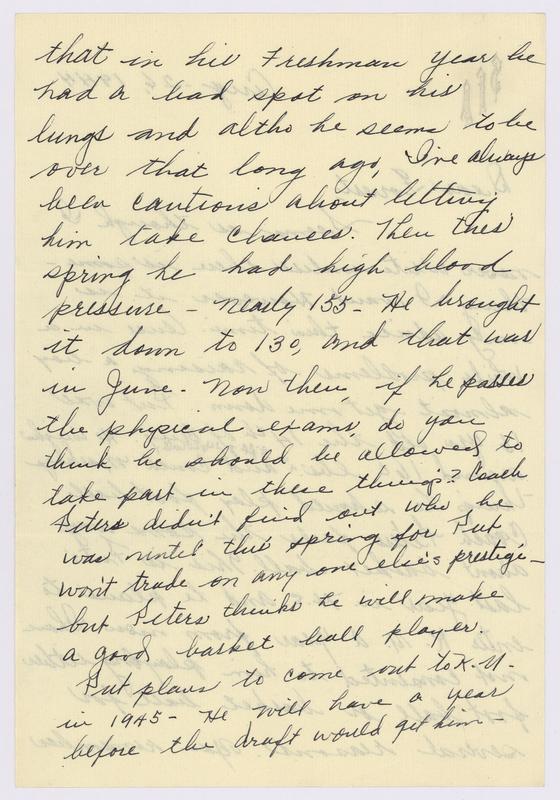 that in his Freshman year he
had a bad spot on his
lungs and altho he seems to be
over that long ago, I've always
been cautious about letting
him take chances. Then this
spring he had high blood
pressure - nearly 155 - He brought
it down to 130, and that was
in June. Now then, if he passes
the physical exams, do you
think he should be allowed to
take part in these things? Coach
Peters didn't find out who he
was until this spring for Put
won't trade on any one else's prestige -
but Peters thinks he will make
a good basket ball player.
Put plans to come out to K.U.
in 1945 - He will have a year
before the draft would get him -